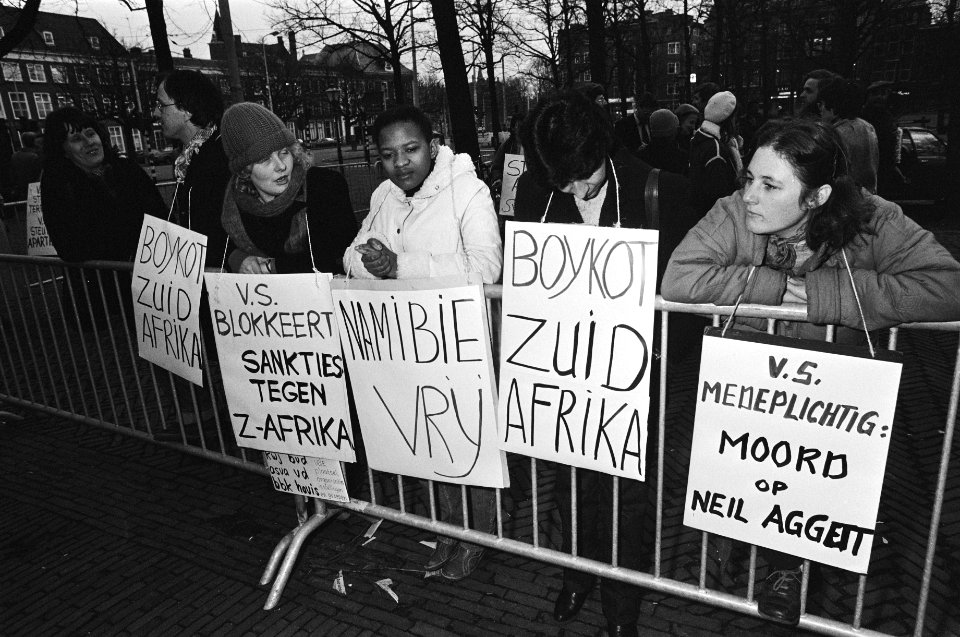 BOYKOT
ZUID
AFRIKA
V.S.
BLOKKEERT
SANKTIES
TEGEN
Z-AFRIKA
NAMIBIE
VRIJ
BOYKOT
ZUID
AFRIKA
V.S.
MEDEPLICHTIG:
MOORD
OP
NEIL AGGETT